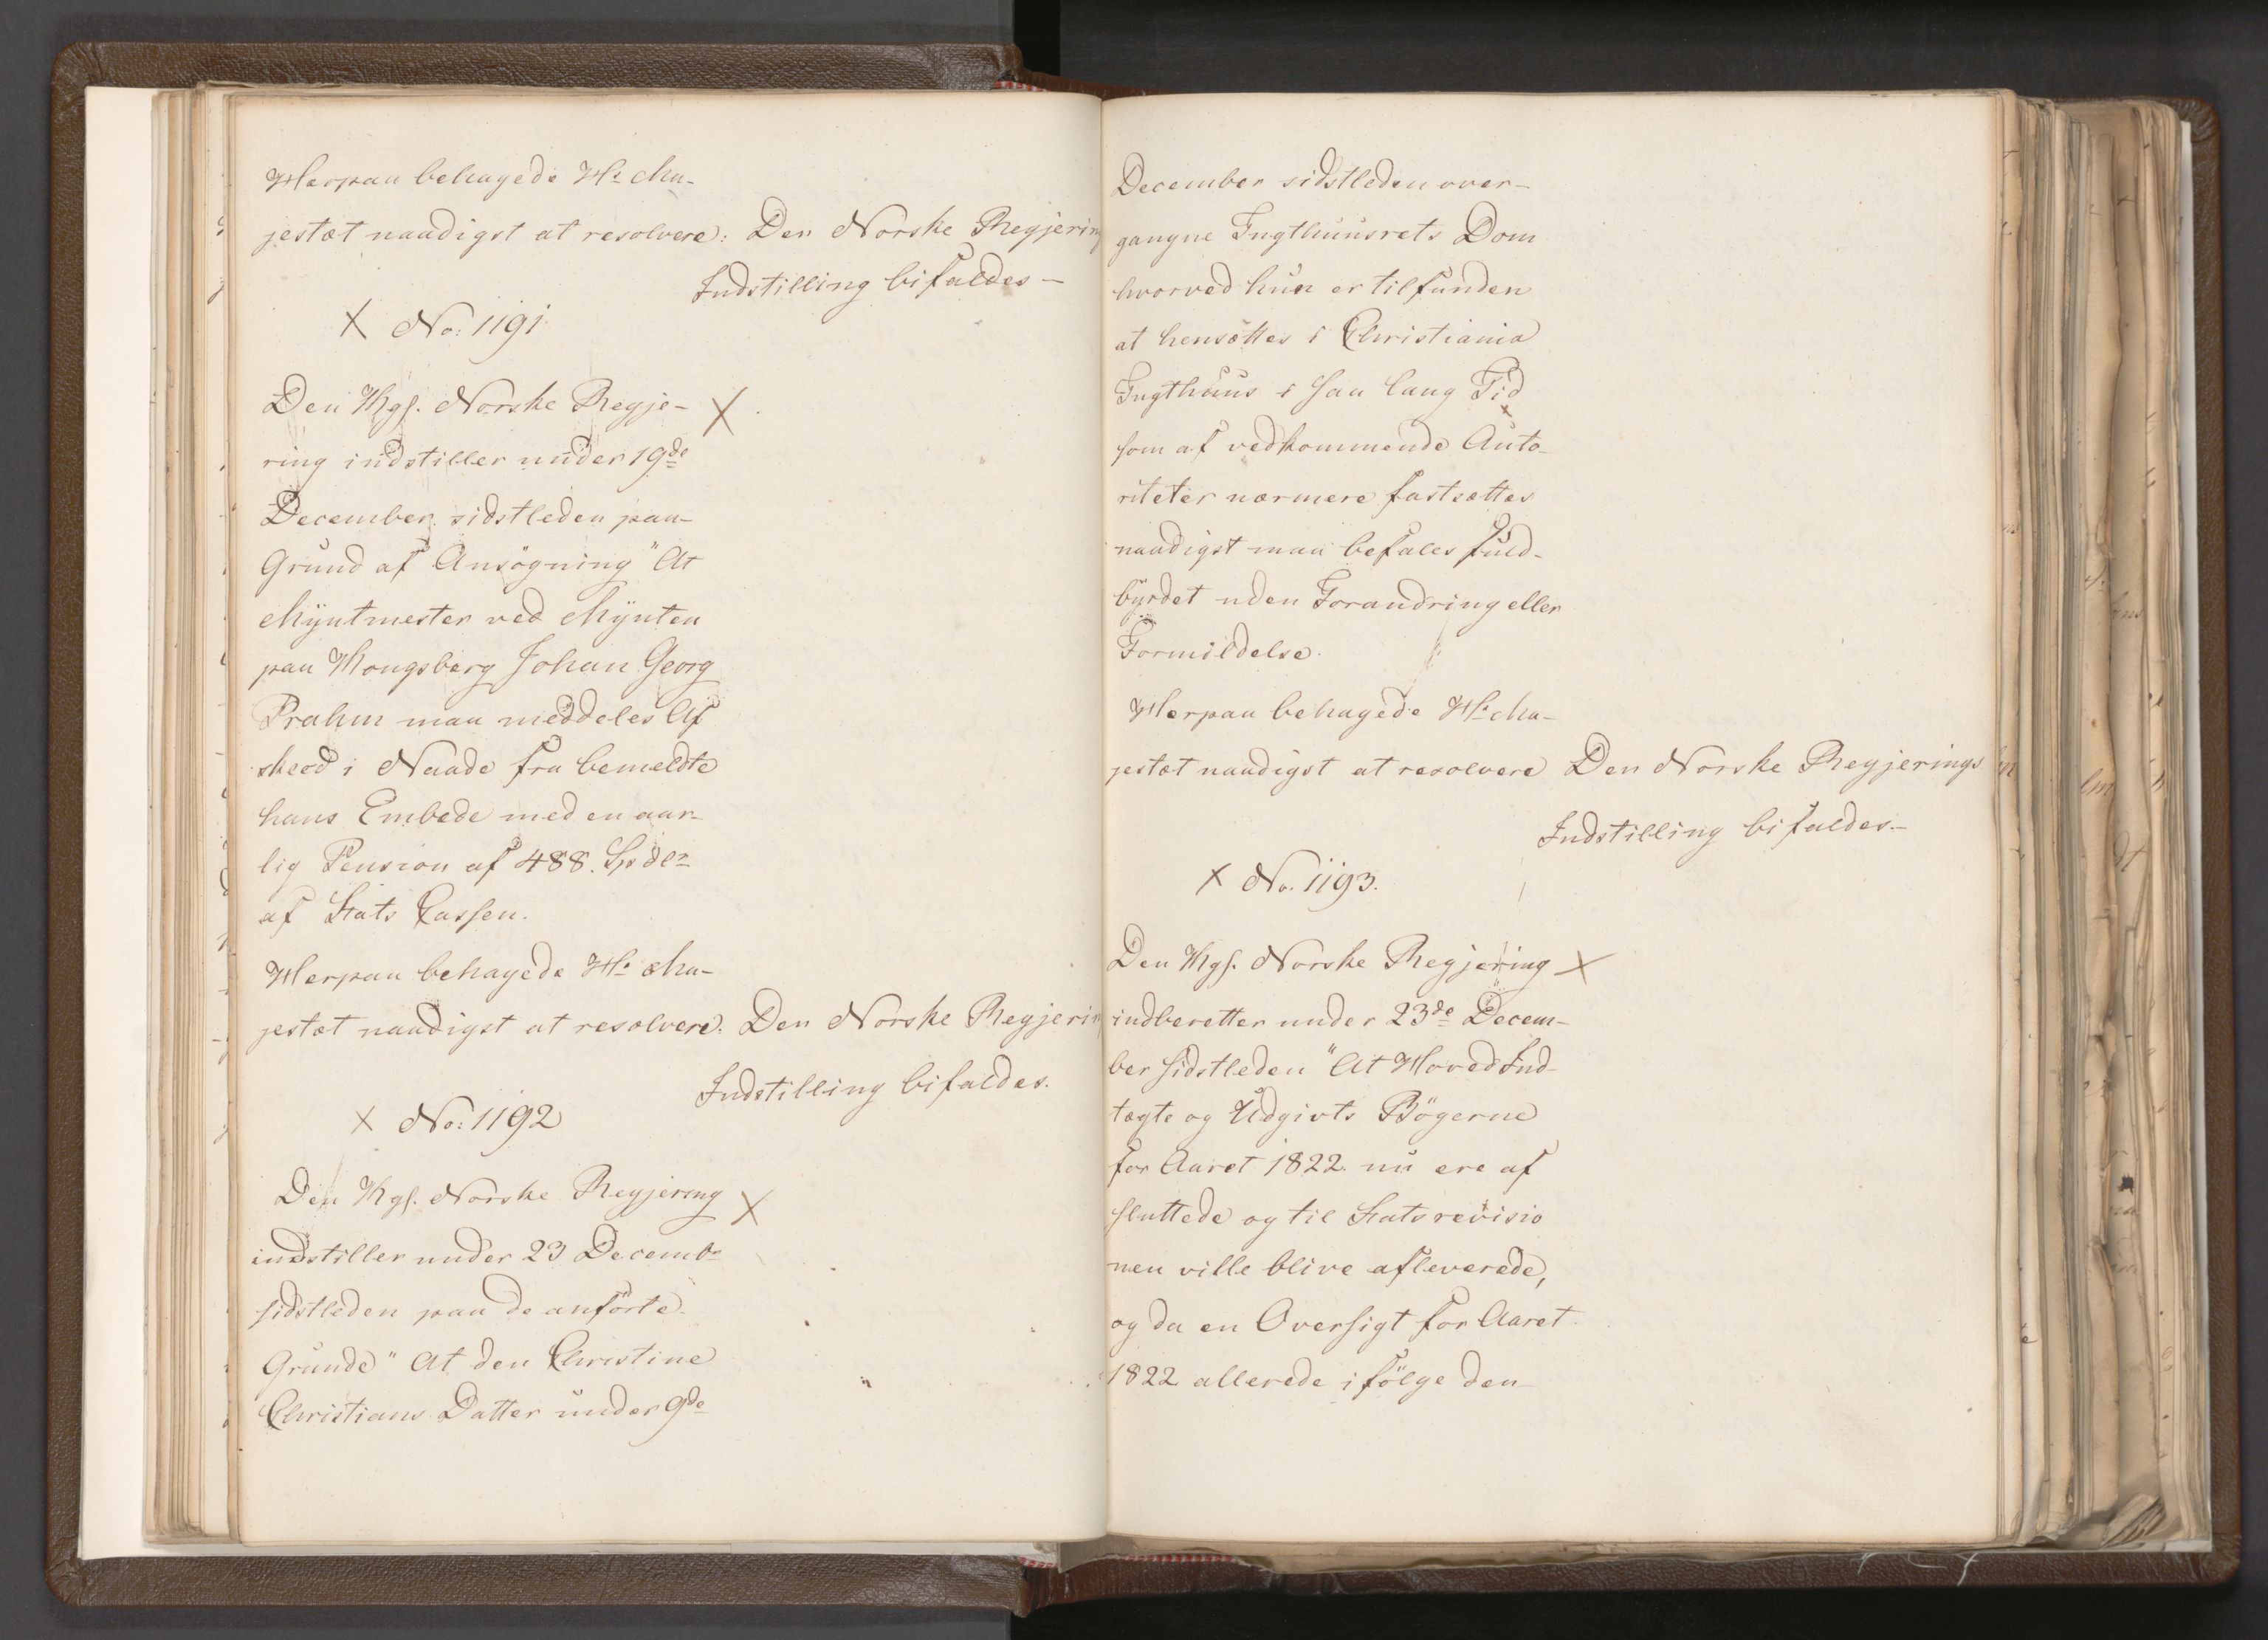 Herpaa behagede Hs Ma-
jestæt naadigst at resolvere: Den Norske Regjering
Indstilling bifaldes —
X No: 1191
Den Kgf. Norske Regje- X
ring indstiller under 19de
December sidstleden paa
Grund af Ansögning "At
Myntmester ved Mynten
paa Kongsberg Johan Georg
Prahm maa meddeles Af
skeed i Naade fra bemeldte
hans Embede med en aar-
lig Pension af 488. Spdlr
af Stats Cassen.
Herpaa behagede Hs Ma-
jestæt naadigst at resolvere: Den Norske Regjerin
Indstilling bifaldes.
X No: 1192
Den Kgf. Norske Regjering X
indstiller under 23 Decembr
sidstleden paa de anförte
Grunde" At den Christine
Christians Datter under 9de
December sidstleden over-
gangne Tugthuusrets Dom
hvorved hun er tilfunden
at hensættes i Christiania
Tugthuus i saa lang Tid
som af vedkommende Auto-
riteter nærmere fastsættes
naadigst maa befales fuld-
byrdet uden Forandring eller
Formildelse.
Herpaa behagede Hs Ma-
jestæt naadigst at resolvere Den Norske Regjerings
Indstilling bifaldes.—
X No. 1193.
Den Kgf. Norske Regjering X
indberetter under 23de Decem-
ber sidstleden "At Hoved Ind-
tægts og Udgivts Bögerne
for Aaret 1822. nu ere af
sluttede og til Statsrevisio
nen ville blive afleverede,
og da en Oversigt for Aaret
1822 allerede ifölge den